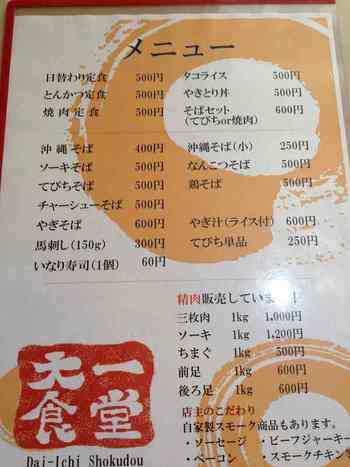 メニュー
日替わり定食 500円
とんかつ定食 500円
焼肉定食 500円
タコライス 500円
やきとり丼 500円
そばセット 600円
(てびちor焼肉)
沖縄そば 400円
ソーキそば 500円
てびちそば 500円
チャーシューそば 500円
やぎそば 600円
馬刺し(150g) 300円
いなり寿司(1個) 60円
沖縄そば(小) 250円
なんこつそば 500円
鶏そば 500円
やぎ汁(ライス付) 600円
てびち単品 250円
精肉販売しています
三枚肉 1kg 1,000円
ソーキ 1kg 1,200円
ちまぐ 1kg 500円
前足 1kg 600円
後ろ足 1kg 600円
店主のこだわり
自家製スモーク商品もあります。
・ソーセージ ・ビーフジャーキー
・ベーコン ・スモークチキン
大一食堂
Dai-Ichi Shokudou